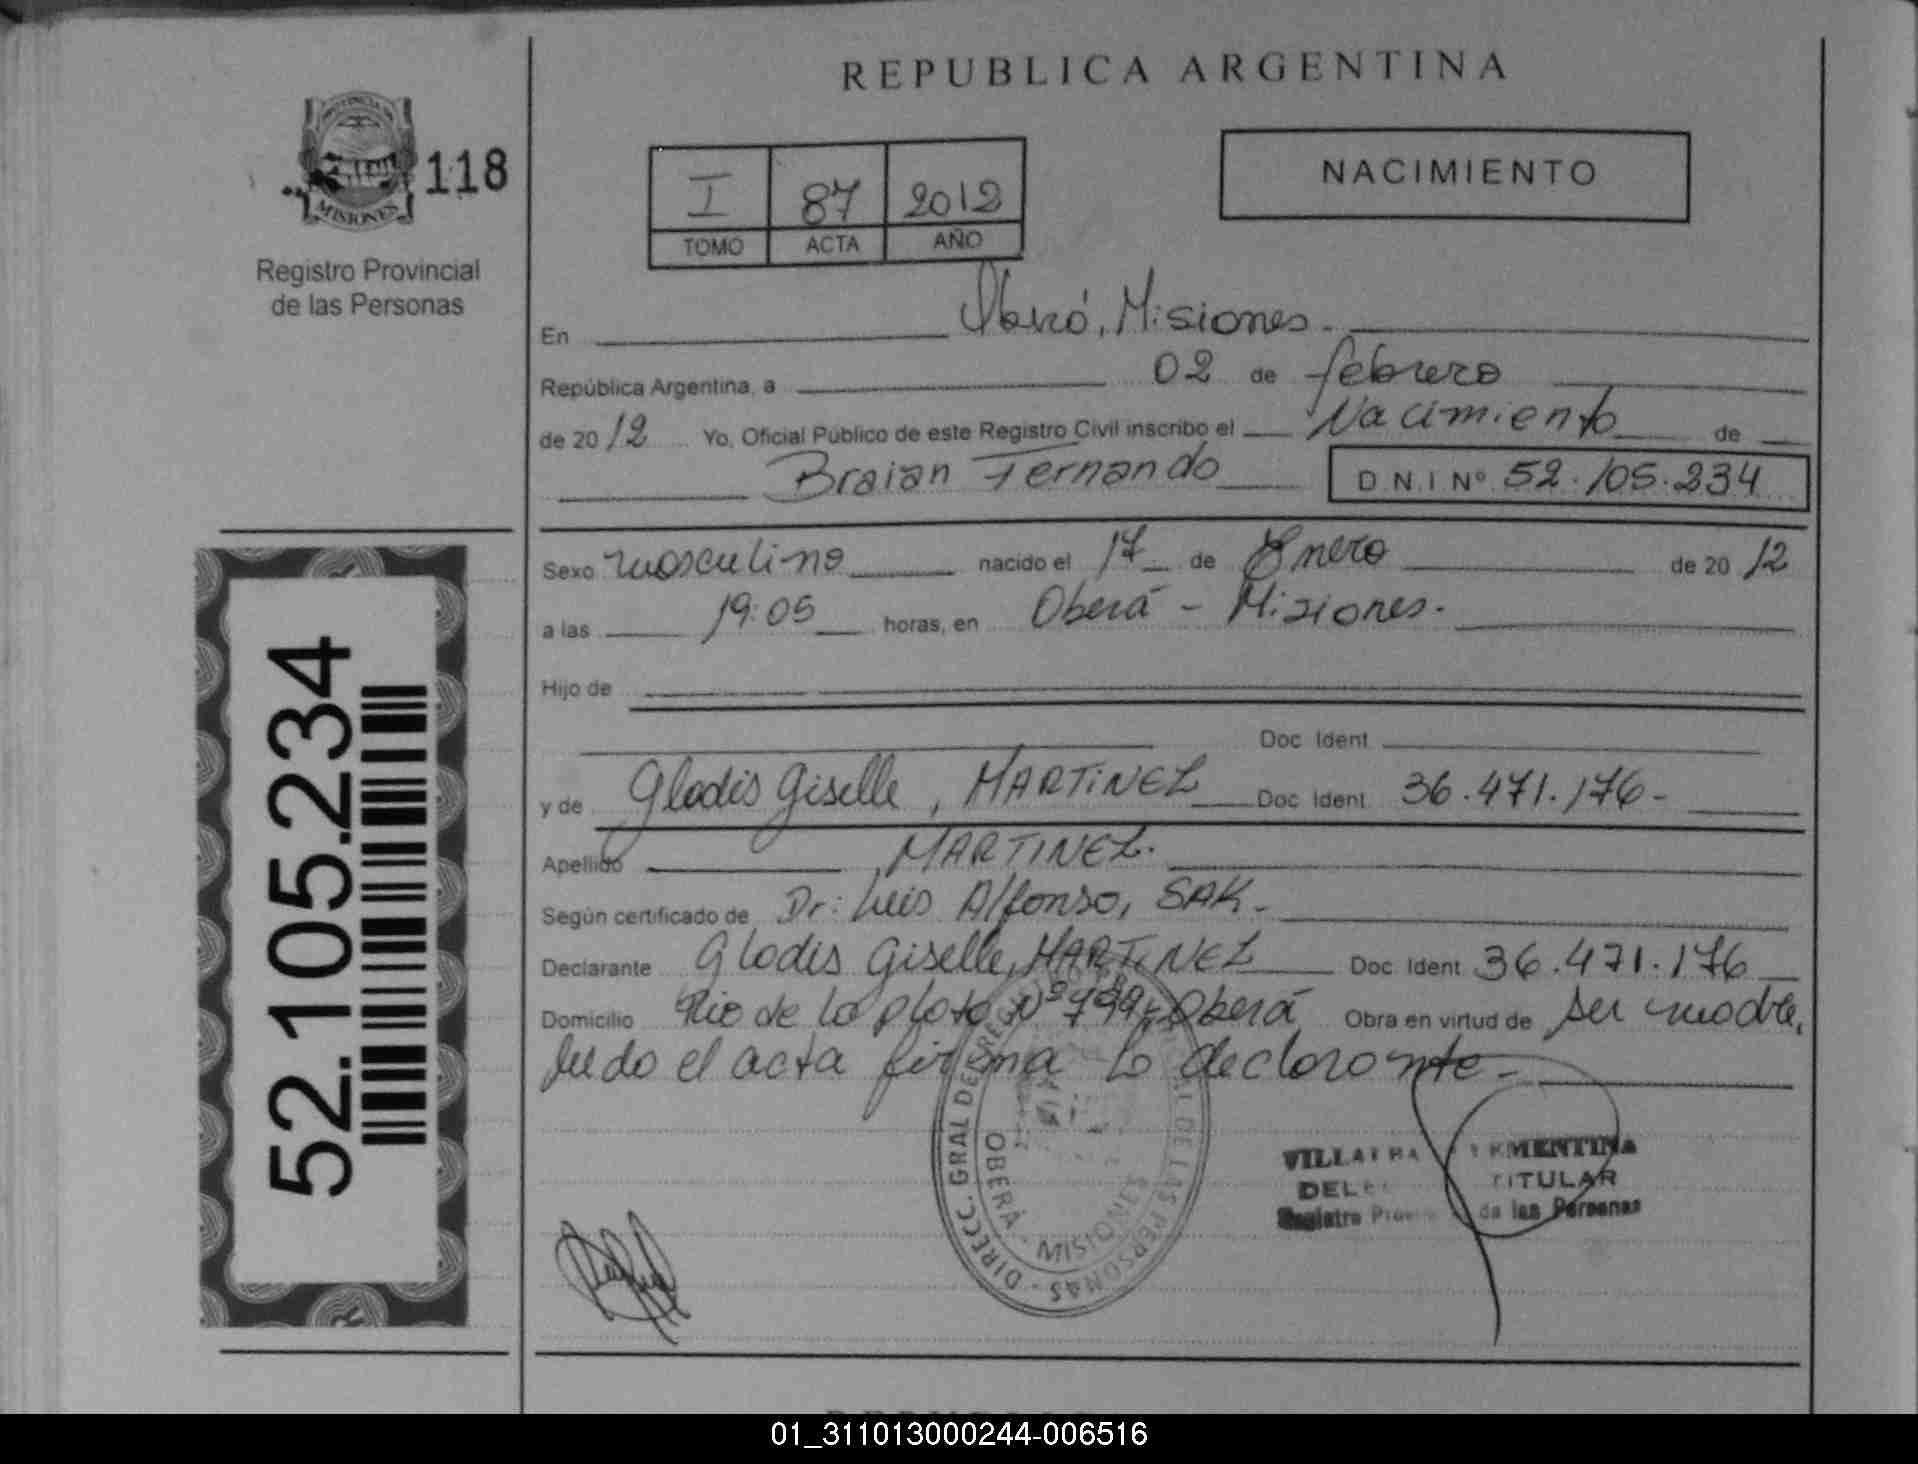 REPUBLICA ARGENTINA
PROVINCIA DE
MISIONES
118
Registro Provincial
de las Personas
I 87 2012
TOMO ACTA AÑO
NACIMIENTO
En Oberá, Misiones.
República Argentina, a 02 de febrero
de 2012 Yo, Oficial Público de este Registro Civil inscribo el Nacimiento de
Braian Fernando D.N.I Nº 52.105.234
Sexo masculino nacido el 17 de Enero de 2012
a las 19:05 horas, en Oberá - Misiones.
Hijo de
Doc Ident
y de Gladis Giselle, MARTINEZ Doc Ident 36.471.176-
Apellido MARTINEZ.
Según certificado de Dr: Luis Alfonso, SAK-
Declarante Gladis Giselle, MARTINEZ Doc Ident 36.471.176
Domicilio Rio de la plata Nº 799- Oberá Obra en virtud de ser madre,
leido el acta firma la declarante-
52.105.234
DIRECC. GRAL DEL REG DE LAS PERSONAS
OBERÁ - MISIONES
TITULAR
Registro de las Personas
01_311013000244-006516